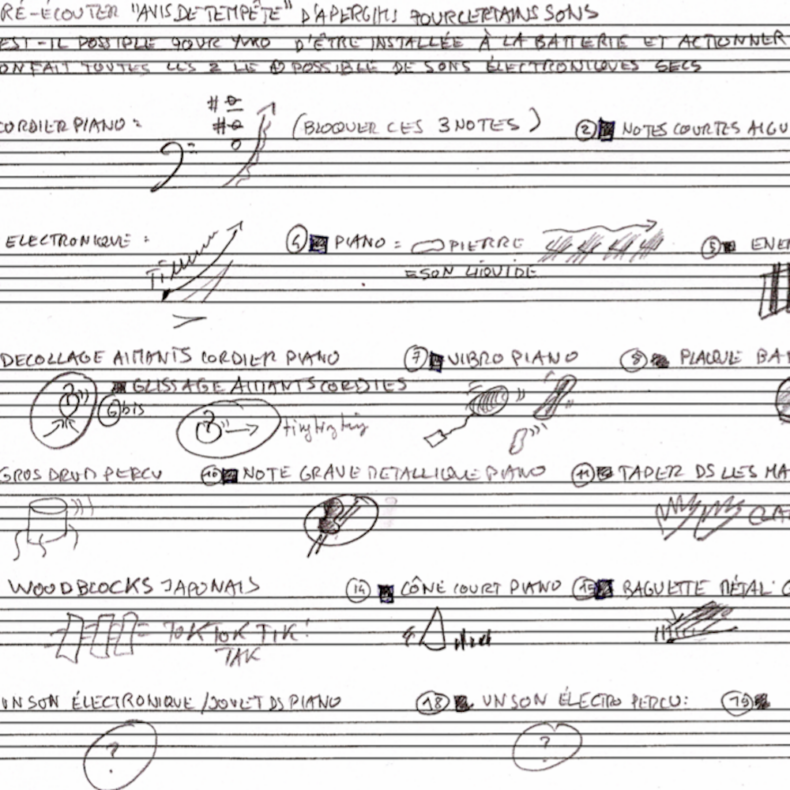 RÉ-ÉCOUTER "AVIS DE TEMPÊTE" D'APERGHIS POUR CERTAINS SONS
EST-IL POSSIBLE POUR YUKO D'ÊTRE INSTALLÉE À LA BATTERIE ET ACTIONNER
ON FAIT TOUTES LES 2 LE + POSSIBLE DE SONS ÉLECTRONIQUES SECS
CORDIER PIANO = (BLOQUER CES 3 NOTES) ② NOTES COURTES AIGU
ELECTRONIQUE = ④ PIANO = PIERRE ⑤ ENE
= SON LIQUIDE
DECOLLAGE AIMANTS CORDIER PIANO ⑦ VIBRO PIANO ⑧ PLAQUE BA
⑥bis GLISSAGE AIMANTS CORDIES
tingtingting
GROS DRUM PERCU ⑩ NOTE GRAVE METALLIQUE PIANO ⑪ TAPER DS LES MA
CLA
WOODBLOCKS JAPONAIS ⑭ CÔNE COURT PIANO ⑮ BAGUETTE MÉTAL
TOK TOK TIK!
TAK
UN SON ÉLECTRONIQUE / JOUET DS PIANO ⑱ UN SON ÉLECTRO PERCU: ⑲
?
?